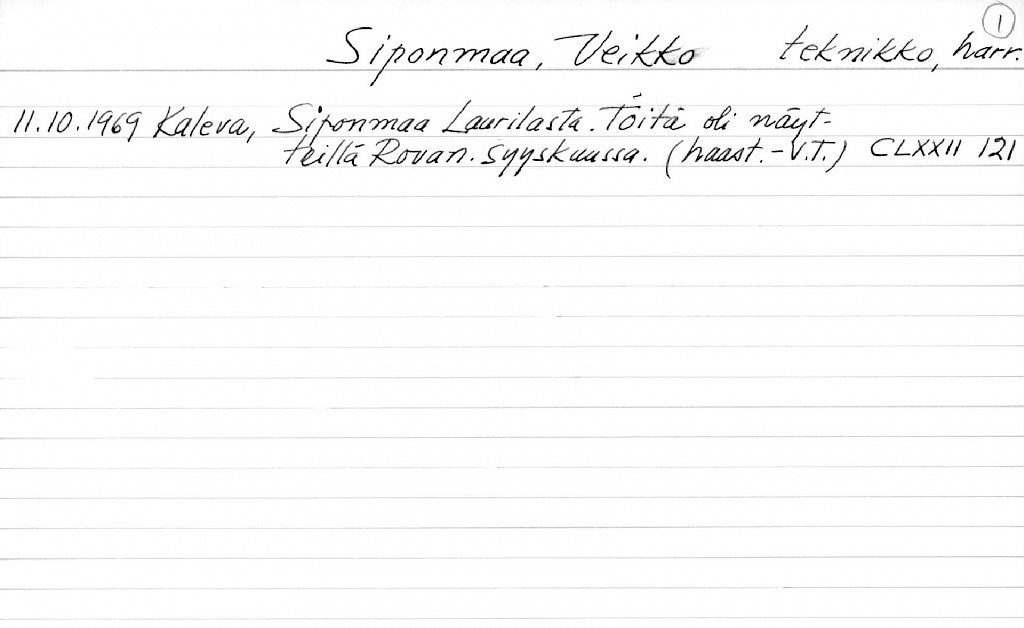 1
Siponmaa, Veikko teknikko, harr.
11.10.1969 Kaleva, Siponmaa Laurilasta. Töitä oli näyt-
teillä Rovan. syyskuussa. (haast. - V.T.) CLXXII 121